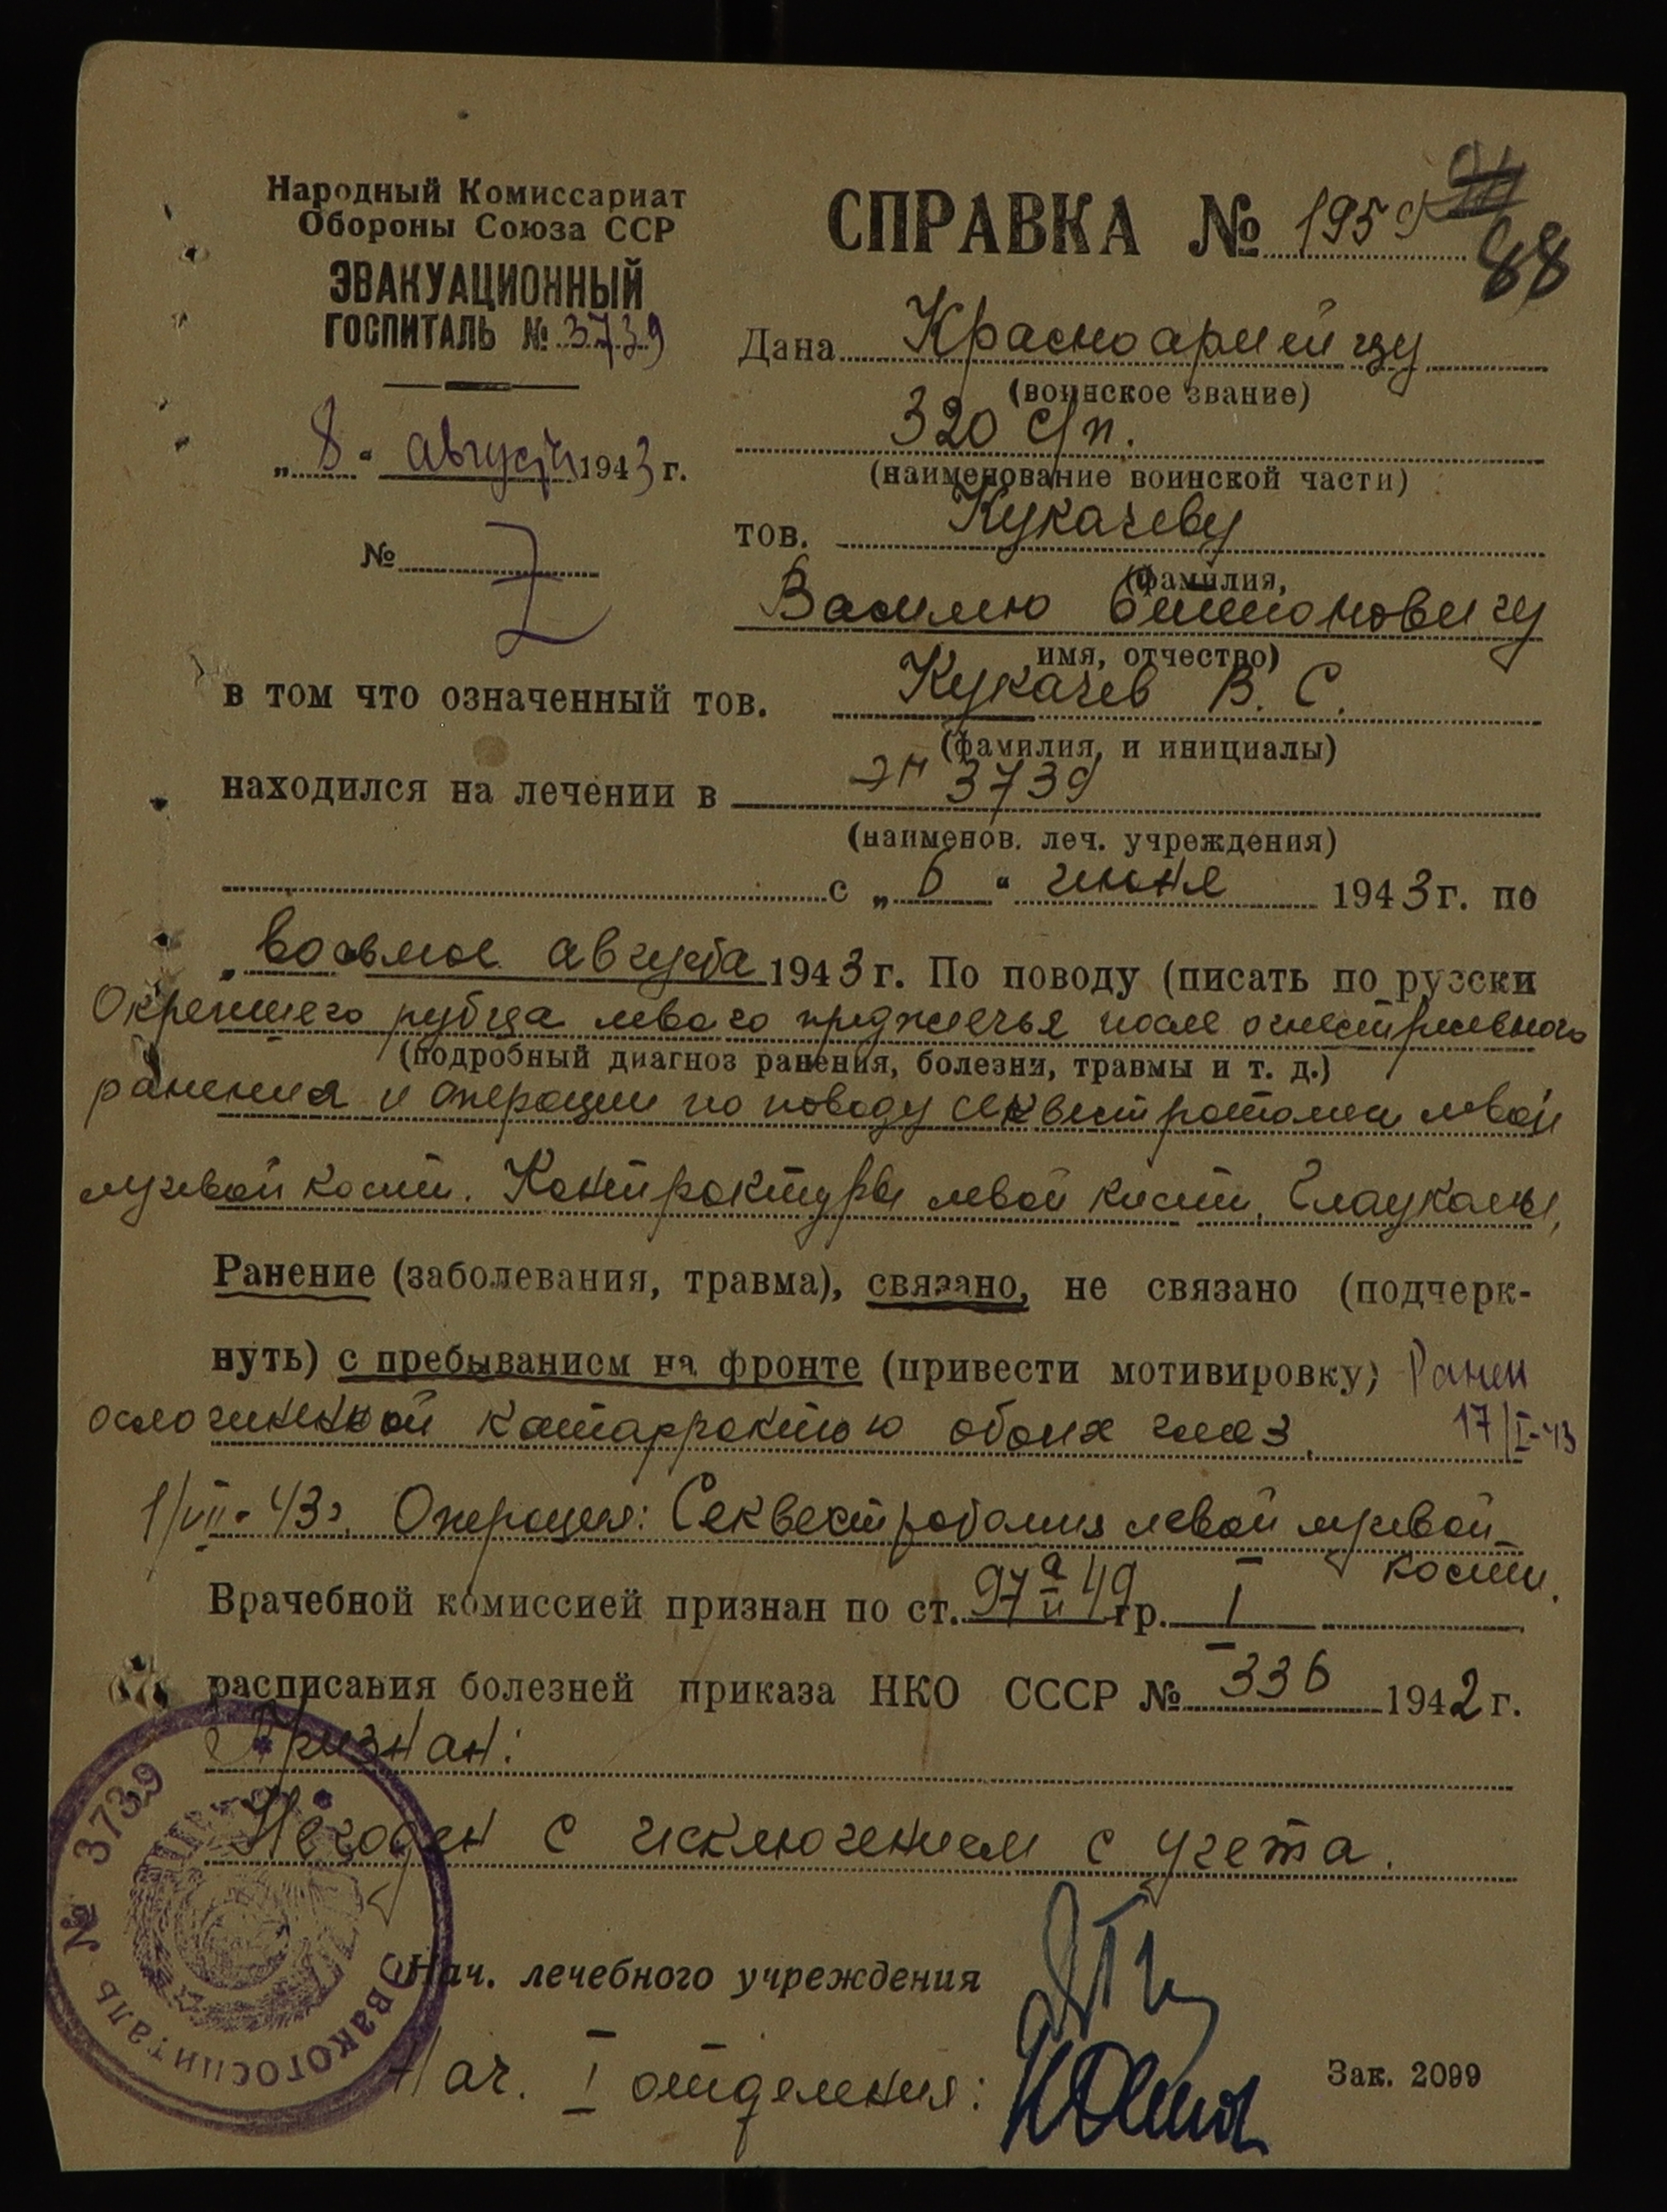 Народный Комиссариат
Обороны Союза ССР
ЭВАКУАЦИОННЫЙ
ГОСПИТАЛЬ № 3739
„8“ августа 1943 г.
№ Z
СПРАВКА № 1959
88
Дана Красноармейцу
(воинское звание)
320 с/п.
(наименование воинской части)
тов. Кукачеву
(фамилия,
Василию Симионовичу
имя, отчество)
в том что означенный тов. Кукачев В. С.
(фамилия, и инициалы)
находился на лечении в ЭГ 3739
(наименов. леч. учреждения)
с „6“ июня 1943 г. по
„восьмое августа 1943 г. По поводу (писать по русски
Окрепшего рубца левого предплечья после огнестрельного
(подробный диагноз ранения, болезни, травмы и т. д.)
ранения и операции по поводу секвестротомии левой
лучевой кости. Контрактуры левой кисти, Глаукомы,
Ранение (заболевания, травма), связано, не связано (подчерк-
нуть) с пребыванием на фронте (привести мотивировку) Ранен
осложненной катарактою обоих глаз. 17/I-43
1/VII-43г. Операция: Секвестротомия левой лучевой
кости.
Врачебной комиссией признан по ст. 97а и 49 гр. I
расписания болезней приказа НКО СССР № 336 1942 г.
Признан:
Негоден с исключением с учета.
Нач. лечебного учреждения
Нач. I отделения:
Зак. 2099
Эвакогоспиталь № 3739